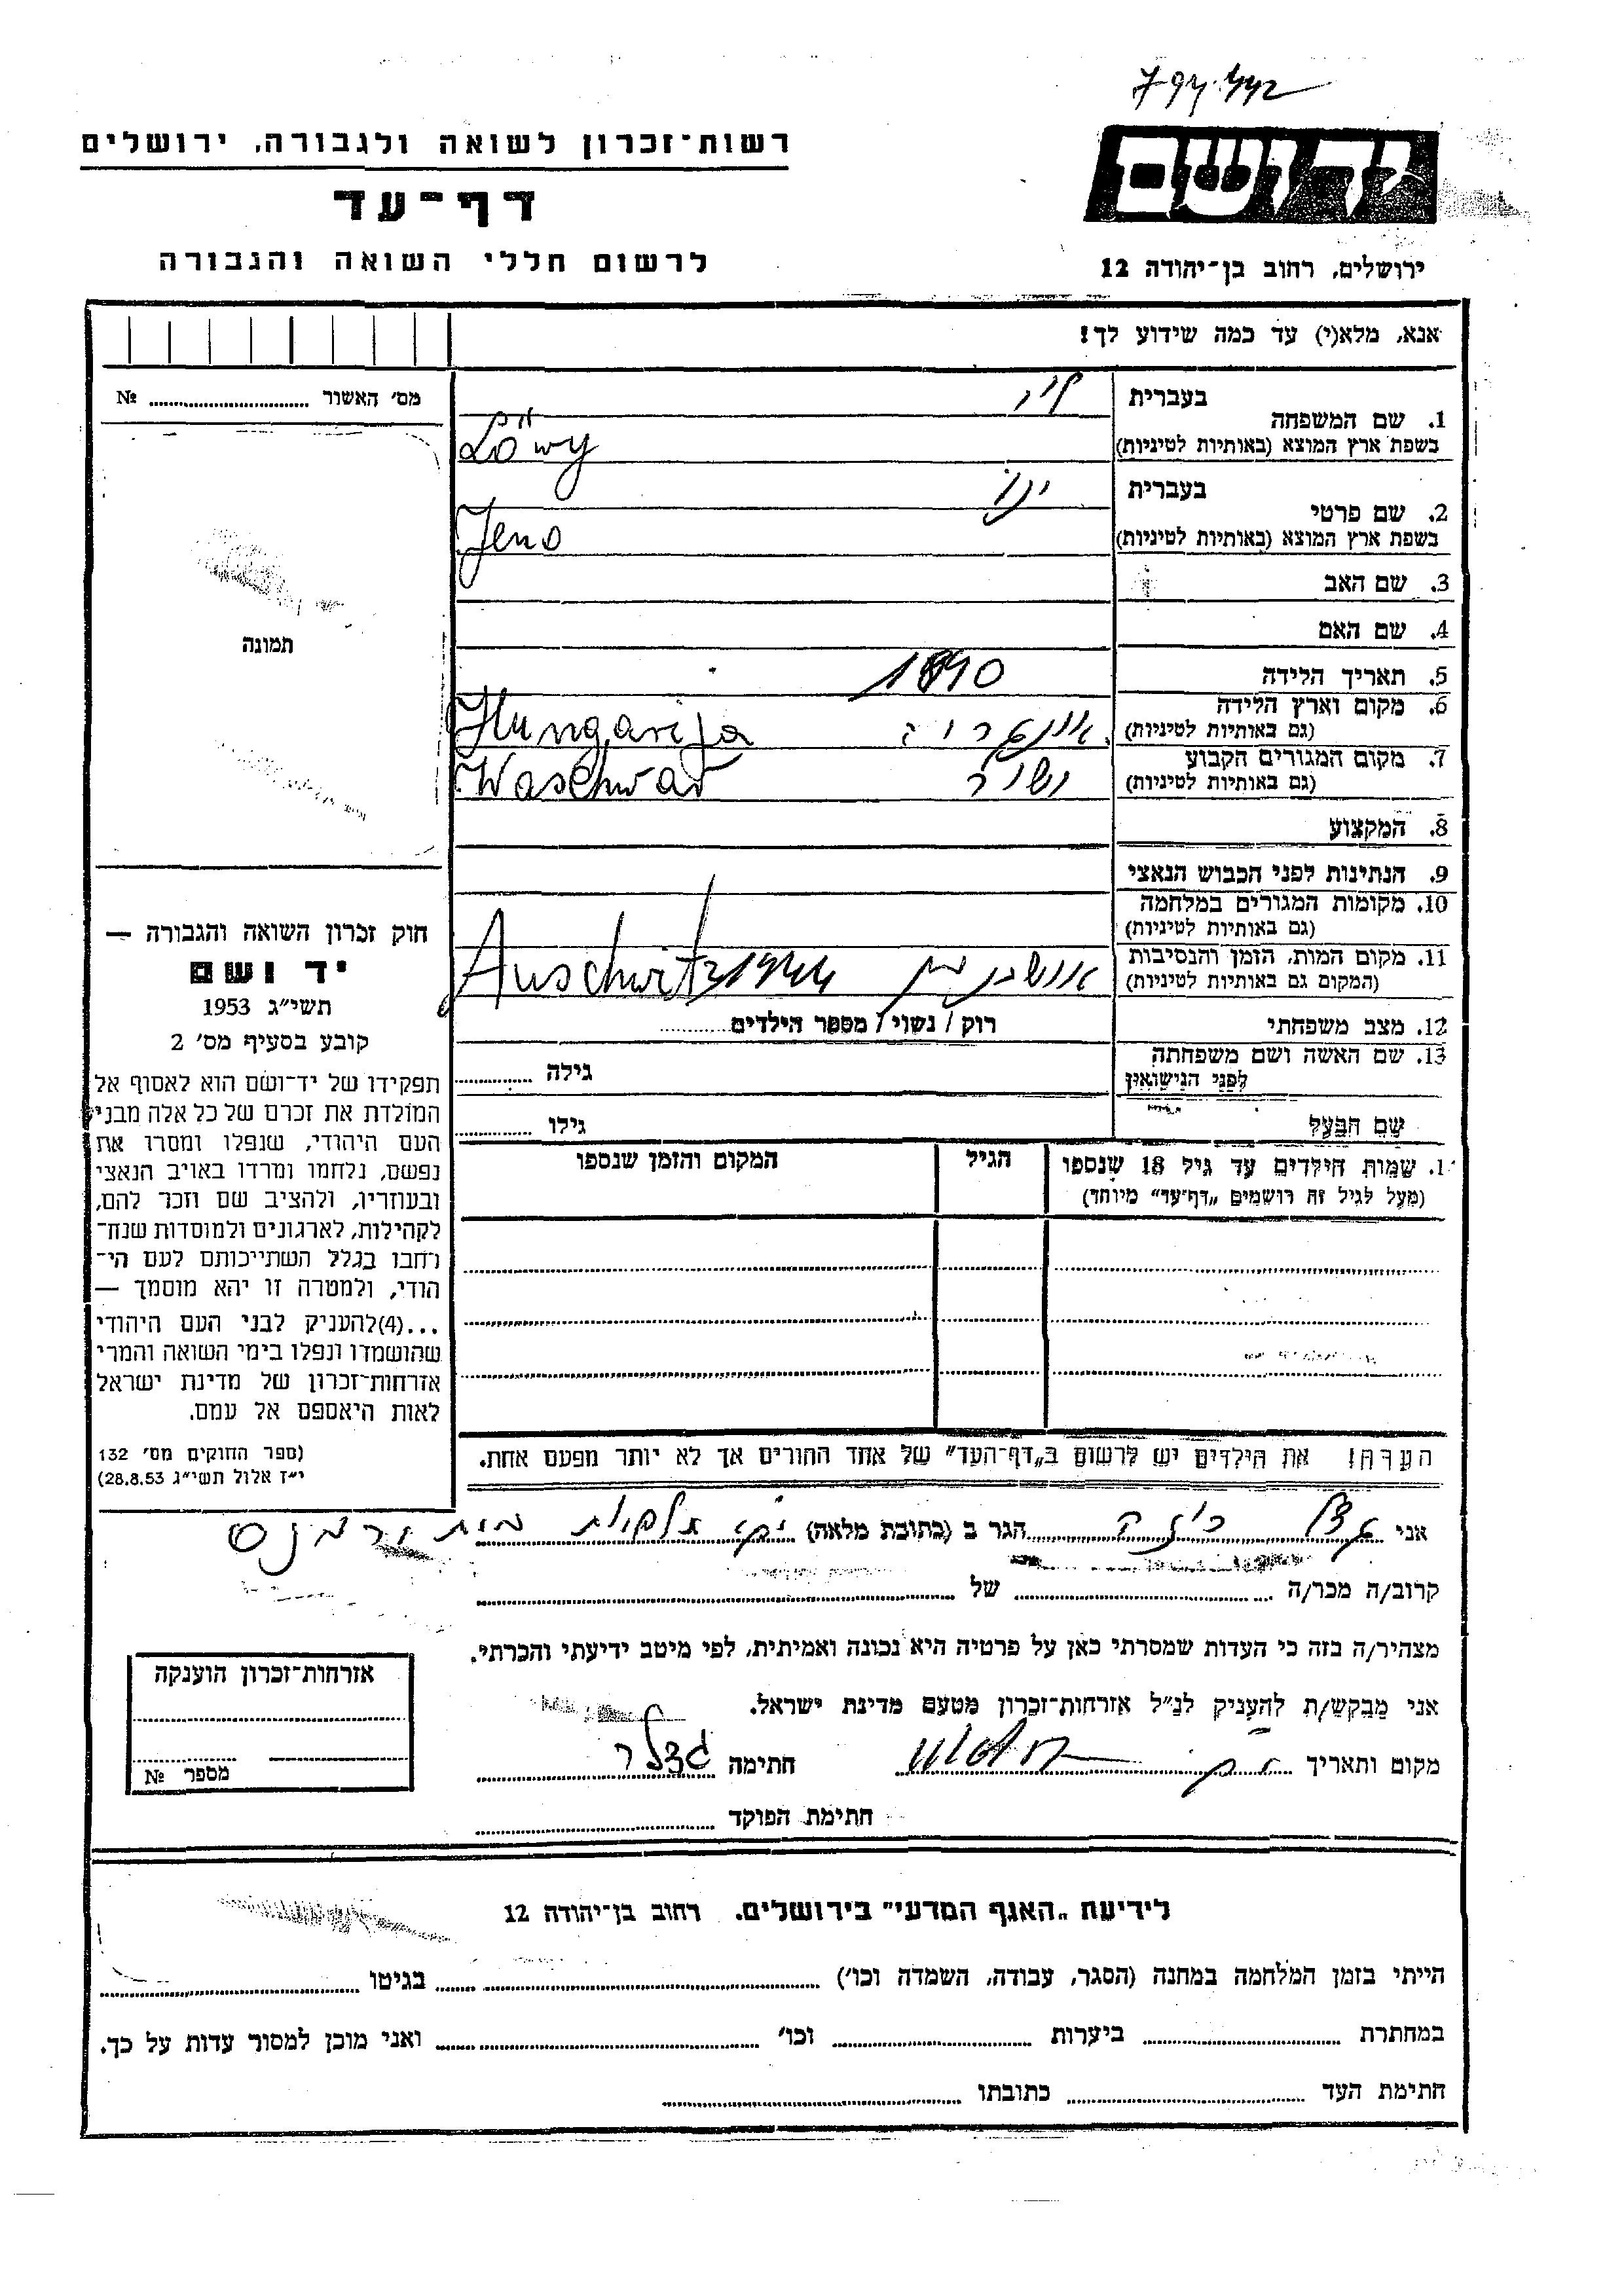 794442
רשות־זכרון לשואה ולגבורה, ירושלים
יד ושם
דף־עד
לרשום חללי השואה והגבורה
ירושלים, רחוב בן־יהודה 12
אנא, מלא(י) עד כמה שידוע לך!
מס׳ האשור № 
1. שם המשפחה
בעברית לוי
בשפת ארץ המוצא (באותיות לטיניות) Löwy
2. שם פרטי
בעברית ינו
בשפת ארץ המוצא (באותיות לטיניות) Jeno
3. שם האב
4. שם האם
5. תאריך הלידה 1890
6. מקום וארץ הלידה
(גם באותיות לטיניות) Hungarija
7. מקום המגורים הקבוע
(גם באותיות לטיניות) Waschwar
8. המקצוע
9. הנתינות לפני הכבוש הנאצי
10. מקומות המגורים במלחמה
(גם באותיות לטיניות)
11. מקום המות, הזמן והנסיבות
(המקום גם באותיות לטיניות) אושוויץ Auschwitz 1944
12. מצב משפחתי רוק / נשוי / מספר הילדים
13. שם האשה ושם משפחתה
לפני הנישואין גילה
שם הבעל גילו
תמונה
חוק זכרון השואה והגבורה —
יד ושם
תשי״ג 1953
קובע בסעיף מס׳ 2
תפקידו של יד־ושם הוא לאסוף אל
המולדת את זכרם של כל אלה מבני
העם היהודי, שנפלו ומסרו את
נפשם, נלחמו ומרדו באויב הנאצי
ובעוזריו, ולהציב שם וזכר להם,
לקהילות, לארגונים ולמוסדות שנח־
רחבו בגלל השתייכותם לעם הי־
הודי, ולמטרה זו יהא מוסמך —
...(4)להעניק לבני העם היהודי
שהושמדו ונפלו בימי השואה והמרי
אזרחות־זכרון של מדינת ישראל
לאות היאספם אל עמם.
(ספר החוקים מס׳ 132
י״ז אלול תשי״ג 28.8.53)
1. שמות הילדים עד גיל 18 שנספו
(מעל לגיל זה רושמים „דף־עד״ מיוחד)
הגיל
המקום והזמן שנספו
הערה! את הילדים יש לרשום ב„דף־העד״ של אחד ההורים אך לא יותר מפעם אחת.
אני הגר ב (כתובת מלאה)
קרוב/ה מכר/ה של
מצהיר/ה בזה כי העדות שמסרתי כאן על פרטיה היא נכונה ואמיתית, לפי מיטב ידיעתי והכרתי.
אני מבקש/ת להעניק לנ״ל אזרחות־זכרון מטעם מדינת ישראל.
מקום ותאריך חתימה
חתימת הפוקד
אזרחות־זכרון הוענקה
מספר №
לידיעת „האגף המדעי״ בירושלים. רחוב בן־יהודה 12
הייתי בזמן המלחמה במחנה (הסגר, עבודה, השמדה וכו׳) בגיטו
במחתרת ביערות וכו׳ ואני מוכן למסור עדות על כך.
חתימת העד כתובתו